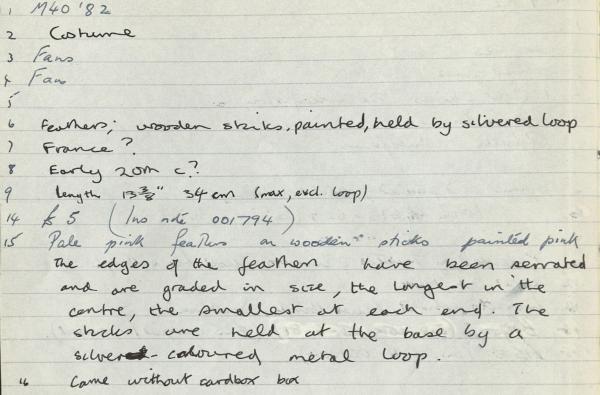 1 M40 '82
2 Costume
3 Fans
4 Fan
5
6 Feathers; wooden sticks, painted, held by silvered loop
7 France?
8 Early 20th c?
9 Length 13 3/8" 34 cm (max, excl. loop)
14 £5 (Ins note 001794)
15 Pale pink feathers on wooden sticks painted pink
The edges of the feathers have been serrated
and are graded in size, the longest in the
centre, the smallest at each end. The
sticks are held at the base by a
silver-coloured metal loop.
16 Came without cardbox box